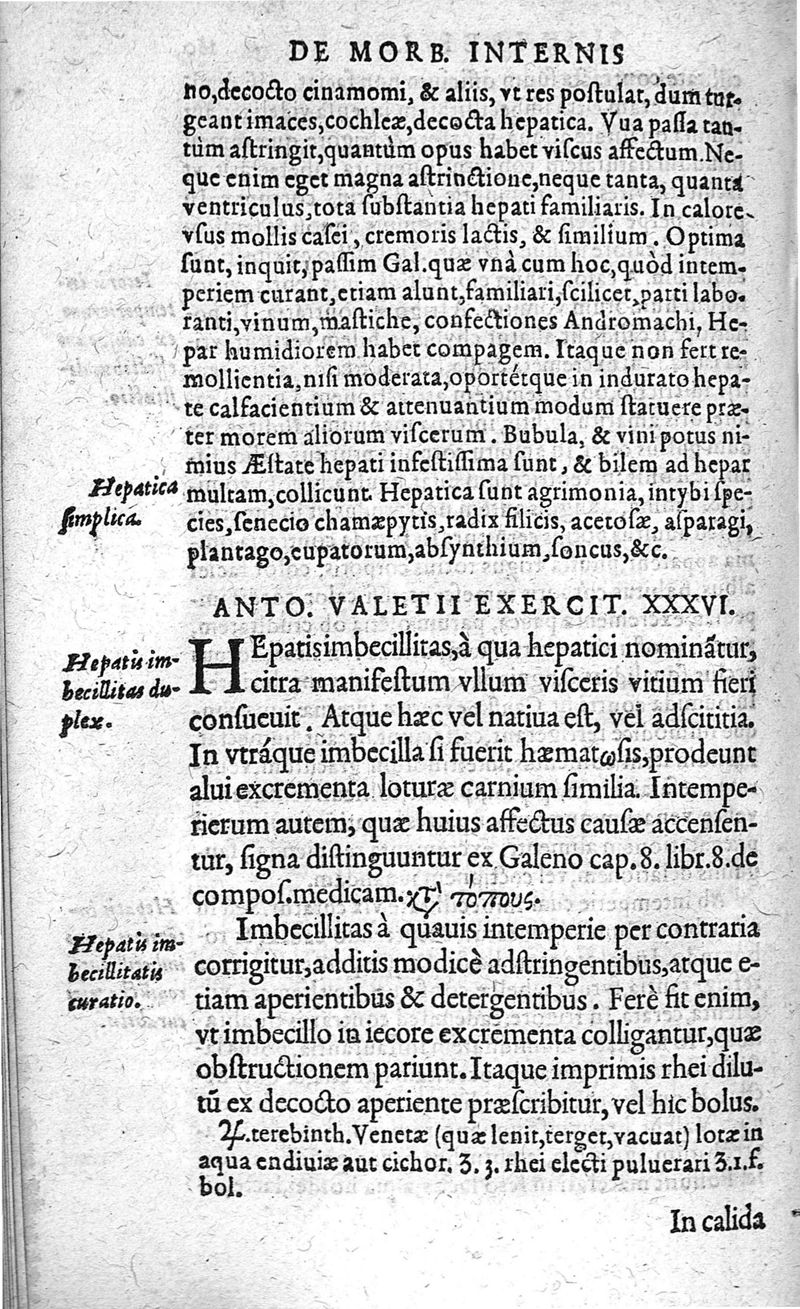 DE MORB. INTERNIS
no,decocto cinamomi, & aliis, vt res poſtulat, dum tur-
geant imaces,cochleæ,decocta hepatica. Vua paſſa tan-
tùm aſtringit,quantùm opus habet viſcus affectum.Ne-
que enim eget magna aſtrinctione,neque tanta, quanta
ventriculus,tota ſubſtantia hepati familiaris. In calore
vſus mollis caſei, cremoris lactis, & ſimilium. Optima
ſunt, inquit, paſſim Gal.quæ vnà cum hoc,quòd intem-
periem curant,etiam alunt,familiari,ſcilicet,parti labo-
ranti,vinum,maſtiche, confectiones Andromachi, He-
par humidiorem habet compagem. Itaque non fert re-
mollientia,niſi moderata,oportétque in indurato hepa-
te calfacientium & attenuantium modum ſtatuere præ-
ter morem aliorum viſcerum. Bubula, & vini potus ni-
mius Æſtate hepati infeſtiſſima ſunt, & bilem ad hepar
multam,collicunt. Hepatica ſunt agrimonia, intybi ſpe-
cies,ſenecio chamæpytis,radix filicis, acetoſæ, aſparagi,
plantago,eupatorum,abſynthium,ſoncus,&c.
Hepatica
ſimplica.
ANTO. VALETII EXERCIT. XXXVI.
HEpatis imbecillitas,à qua hepatici nominātur,
citra manifeſtum vllum viſceris vitium fieri
conſueuit. Atque hæc vel natiua eſt, vel adſcititia.
In vtráque imbecilla ſi fuerit hæmatωſis,prodeunt
alui excrementa loturæ carnium ſimilia. Intempe-
rierum autem, quæ huius affectus cauſæ accenſen-
tur, ſigna diſtinguuntur ex Galeno cap. 8. libr.8.de
compoſ.medicam.κτ̃ τόπους.
Hepatis im-
becillitas du-
plex.
Imbecillitas à quauis intemperie per contraria
corrigitur,additis modicè adſtringentibus,atque e-
tiam aperientibus & detergentibus. Ferè fit enim,
vt imbecillo in iecore excrementa colligantur,quæ
obſtructionem pariunt. Itaque imprimis rhei dilu-
tū ex decocto aperiente præſcribitur, vel hic bolus.
Hepatis im-
becillitatis
curatio.
♃.terebinth.Venetæ (quæ lenit,terget,vacuat) lotæ in
aqua endiuiæ aut cichor. ʒ. ʒ. rhei electi puluerari ʒ.1.ſ.
bol.
In calida